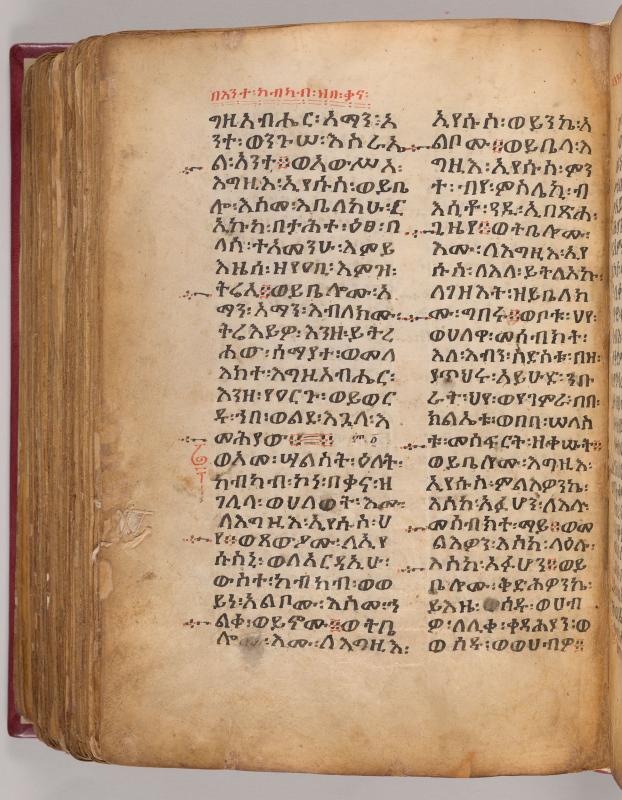 በእንተ፡ከብካብ፡ዘበ፡ቃና፡
ግዚአብሔር፡አማን፡አ
ንተ፡ወንጉሠ፡እስራኤ
ል፡አንተ፨ወአውሥአ፡
እግዚእ፡ኢየሱስ፡ወይቤ
ሎ፡እስመ፡እቤለከሁ፡ር
ኢኩከ፡በታሕተ፡ዕፀ፡በ
ለስ፡ተአመንሁ፡እምይ
እዜሰ፡ዘየዐቢ፡እምዝ፡
ትሬኢ፨ወይቤሎሙ፡አ
ማን፡አማን፡እብለክሙ፡
ትሬእይዎ፡እንዘ፡ይትረ
ሐው፡ሰማያተ፡ወመላ
እክተ፡እግዚአብሔር፡
እንዘ፡የዐርጉ፡ወይወር
ዱ፡ኀበ፡ወልደ፡እጓለ፡እ
መሕያው፨
ወአመ፡ሣልስት፡ዕለት፡
ከብካብ፡ኮነ፡በቃና፡ዘ
ገሊላ፡ወሀለወት፡እሙ
ለእግዚእ፡ኢየሱስ፡ህ
የ፨ወጸውዖሙ፡ለኢየ
ሱስኒ፡ወለአርዳኢሁ፡
ውስተ፡ከብካብ፡ወወ
ይነ፡አልቦሙ፡እስመ፡ኀ
ልቀ፡ወይኖሙ፨ወትቤ
ሎ፡እሙ፡ለእግዚእ፡
ኢየሱስ፡ወይንኬ፡አ
ልቦሙ፨ወይቤላ፡እ
ግዚእ፡ኢየሱስ፡ምን
ት፡ብየ፡ምስሌኪ፡ብ
እሲቶ፡ዓዲ፡ኢበጽሐ፡
ጊዜየ፨ወትቤሎሙ፡
እሙ፡ለእግዚእ፡ኢየ
ሱስ፡ለእለ፡ይትለአኩ፡
ለገዝእት፡ዘይቤለክ
ሙ፡ግበሩ፨ወቦቱ፡ህየ፡
ወሀለዋ፡መሳብክት፡
እለ፡እብን፡ስድስቱ፡በዘ፡
ያጥህሩ፡አይሁድ፡ንቡ
ራት፡ህየ፡ወየገምራ፡በበ፡
ክልኤቱ፡ወበበ፡ሠለስ
ቱ፡መስፈርት፡ዘቀሡት፨
ወይቤሎሙ፡እግዚእ፡
ኢየሱስ፡ምልእዎንኬ፡
እስከ፡አፈሆን፡ለእሉ፡
መሳብክት፡ማይ፨ወመ
ልእዎን፡እስከ፡ላዕሉ፡
እስከ፡አፉሆን፨ወይ
ቤሎሙ፡ቅድሕዎንኬ፡
ይእዜ፡ወሰዱ፡ወሀብ
ዎ፡ለሊቀ፡ቀዳሕያን፡ወ
ወሰዱ፡ወወሀብዎ፨